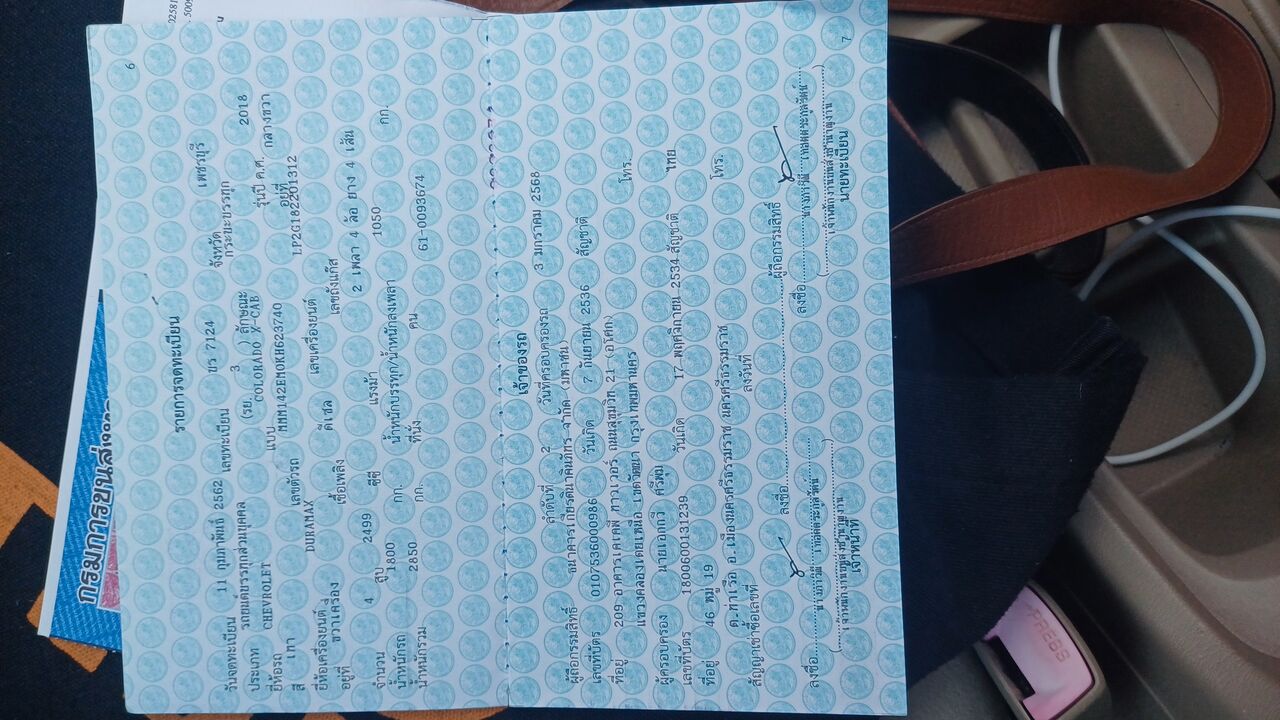 02581
.5005
กรมการขนส่งทางบก
6
รายการจดทะเบียน
วันจดทะเบียน 11 กุมภาพันธ์ 2562 เลขทะเบียน ขร 7124 จังหวัด เพชรบุรี
ประเภท รถยนต์บรรทุกส่วนบุคคล (รย. 3 ) ลักษณะ กระบะบรรทุก
ยี่ห้อรถ CHEVROLET แบบ COLORADO X-CAB รุ่นปี ค.ศ. 2018
สี เทา เลขตัวรถ MMM142EM0KH623740 อยู่ที่ กลางขวา
ยี่ห้อเครื่องยนต์ DURAMAX เลขเครื่องยนต์ LP2G182201312
อยู่ที่ ขวาเครื่อง เชื้อเพลิง ดีเซล เลขถังแก๊ส
จำนวน 4 สูบ 2499 ซีซี แรงม้า 2 เพลา 4 ล้อ ยาง 4 เส้น
น้ำหนักรถ 1800 กก. น้ำหนักบรรทุก/น้ำหนักลงเพลา 1050 กก.
น้ำหนักรวม 2850 กก. ที่นั่ง คน 61-0093674
เจ้าของรถ
ลำดับที่ 2 วันที่ครอบครองรถ 3 มกราคม 2568
ผู้ถือกรรมสิทธิ์ ธนาคารเกียรตินาคินภัทร จำกัด (มหาชน)
เลขที่บัตร 0107536000986 วันเกิด 7 กันยายน 2536 สัญชาติ
ที่อยู่ 209 อาคารเคเคพี ทาวเวอร์ ถนนสุขุมวิท 21 (อโศก)
แขวงคลองเตยเหนือ เขตวัฒนา กรุงเทพมหานคร โทร.
ผู้ครอบครอง นายเอกกวี ศรีพุฒ
เลขที่บัตร 1800600131239 วันเกิด 17 พฤศจิกายน 2534 สัญชาติ ไทย
ที่อยู่ 46 หมู่ 19
ต.ท่าเรือ อ.เมืองนครศรีธรรมราช นครศรีธรรมราช โทร.
สัญญาเช่าซื้อเลขที่ ลงวันที่
ลงชื่อ ผู้ถือกรรมสิทธิ์
ลงชื่อ ลงชื่อ
เจ้าหน้าที่ นายทะเบียน
7
PRESS